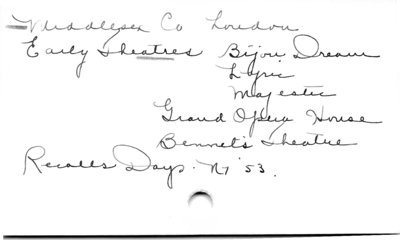 Middlesex Co London
Early Theatres Bijou Dream
Lyric
Majestic
Grand Opera House
Bennet's Theatre
Recalls Days. N 7 '53.